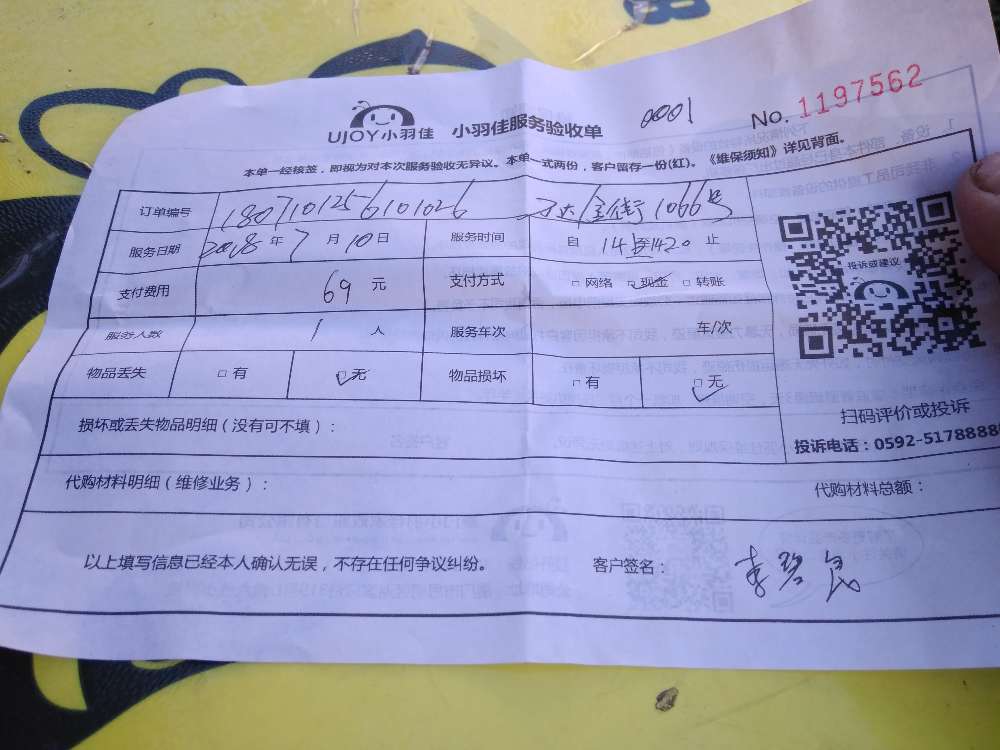 UJOY小羽佳 小羽佳服务验收单 0001 No. 1197562
本单一经核签，即视为对本次服务验收无异议。本单一式两份，客户留存一份(红)。《维保须知》详见背面。
订单编号 1807101256101026 万达金街1066号
服务日期 2018年7月10日 服务时间 自 14至1420 止
支付费用 69 元 支付方式 □ 网络 ☑ 现金 □ 转账
投诉或建议
服务人数 1 人 服务车次 车/次
物品丢失 □ 有 ☑ 无 物品损坏 □ 有 ☑ 无
扫码评价或投诉
损坏或丢失物品明细（没有可不填）：
投诉电话：0592-5178888
代购材料明细（维修业务）： 代购材料总额：
以上填写信息已经本人确认无误，不存在任何争议纠纷。 客户签名： 李碧